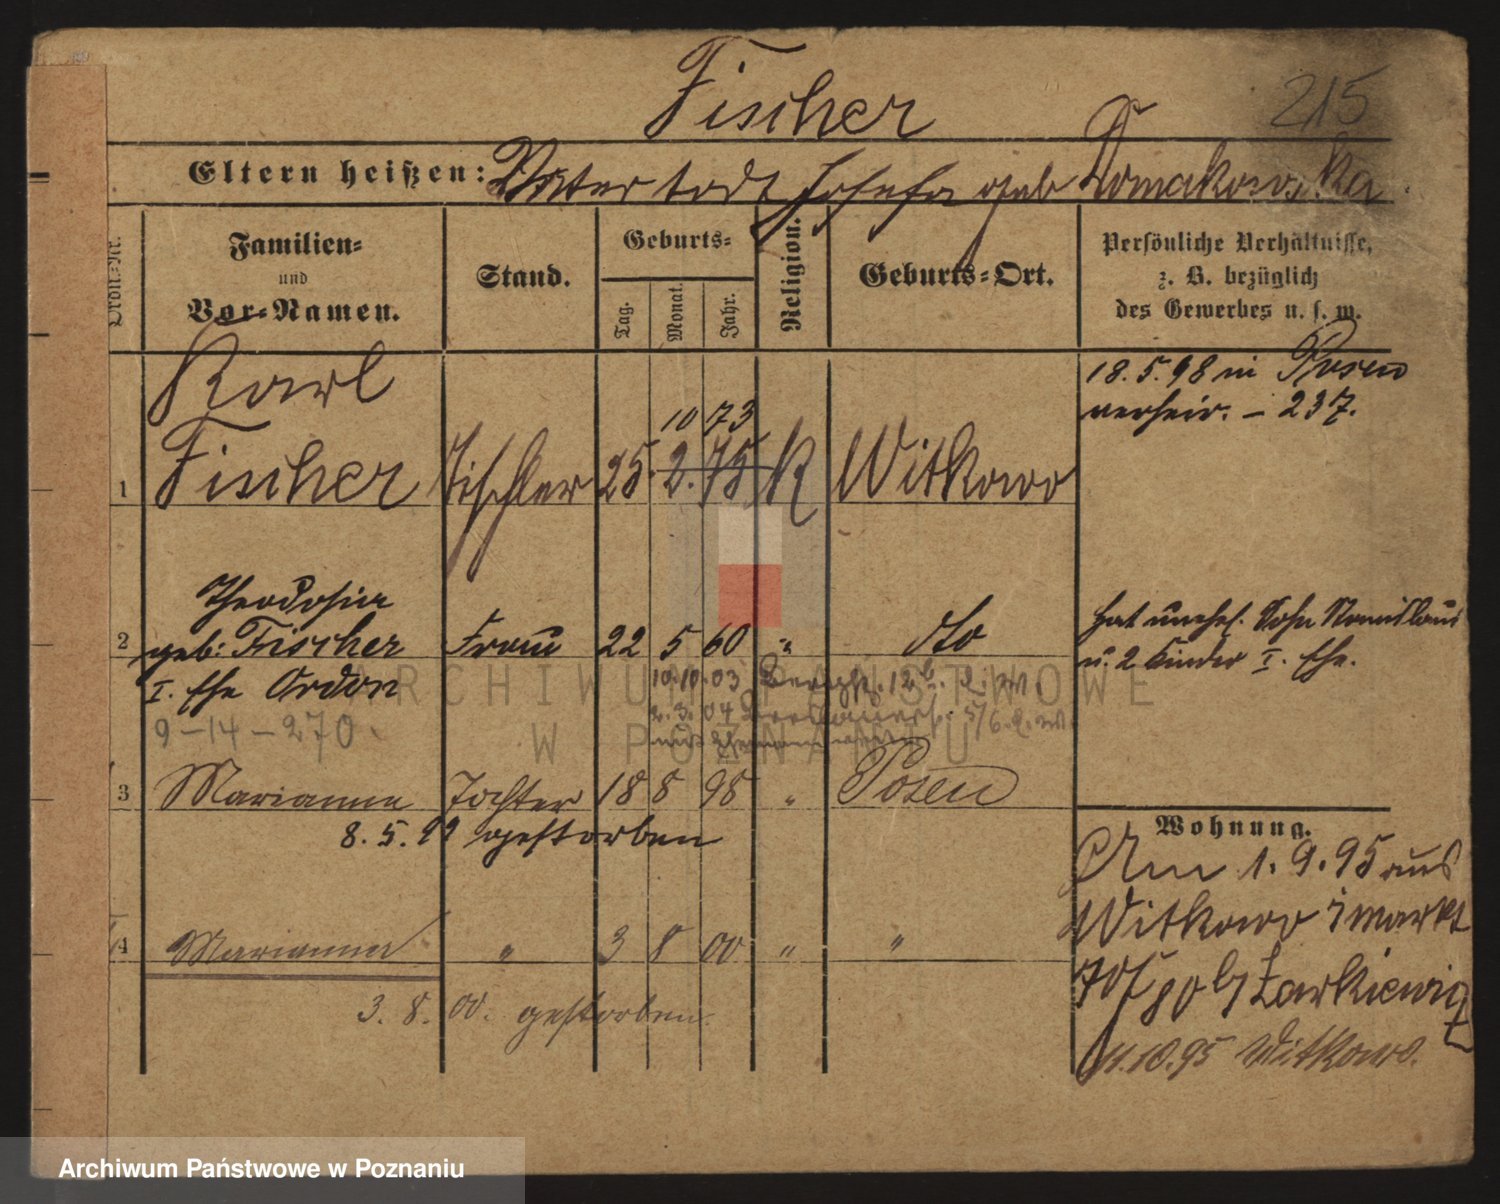 Fischer
215
Eltern heißen: Vater todt Josefa geb Domakowska
Ordn.-Nr.
Familien-
und
Vor-Namen.
Stand.
Geburts-
Tag.
Monat.
Jahr.
Religion.
Geburts-Ort.
Persönliche Verhältnisse,
z. B. bezüglich
des Gewerbes u. s. w.
Karl
10 73
1 Fischer Tischler 25. 2. 75 K Witkowo
18. 5. 98 in Posen
verheir. – 237.
Theodosia
2 geb: Fischer Frau 22 5 60 " dto
I. Ehe Ordon
9-14-270.
hat unehel. Sohn Stanislaus
u. 2 Kinder I. Ehe.
10.10.03
2. 3. 04
3 Marianna Tochter 18 8 98 " Posen
8. 5. 99 gestorben
4 Marianna " 3 8 00 " "
3. 8. 00. gestorben.
Wohnung.
Am 1. 9. 95 aus
Witkowo
Zarkiewicz
11.10.95 Witkowo.
ARCHIWUM PAŃSTWOWE
W POZNANIU
Archiwum Państwowe w Poznaniu